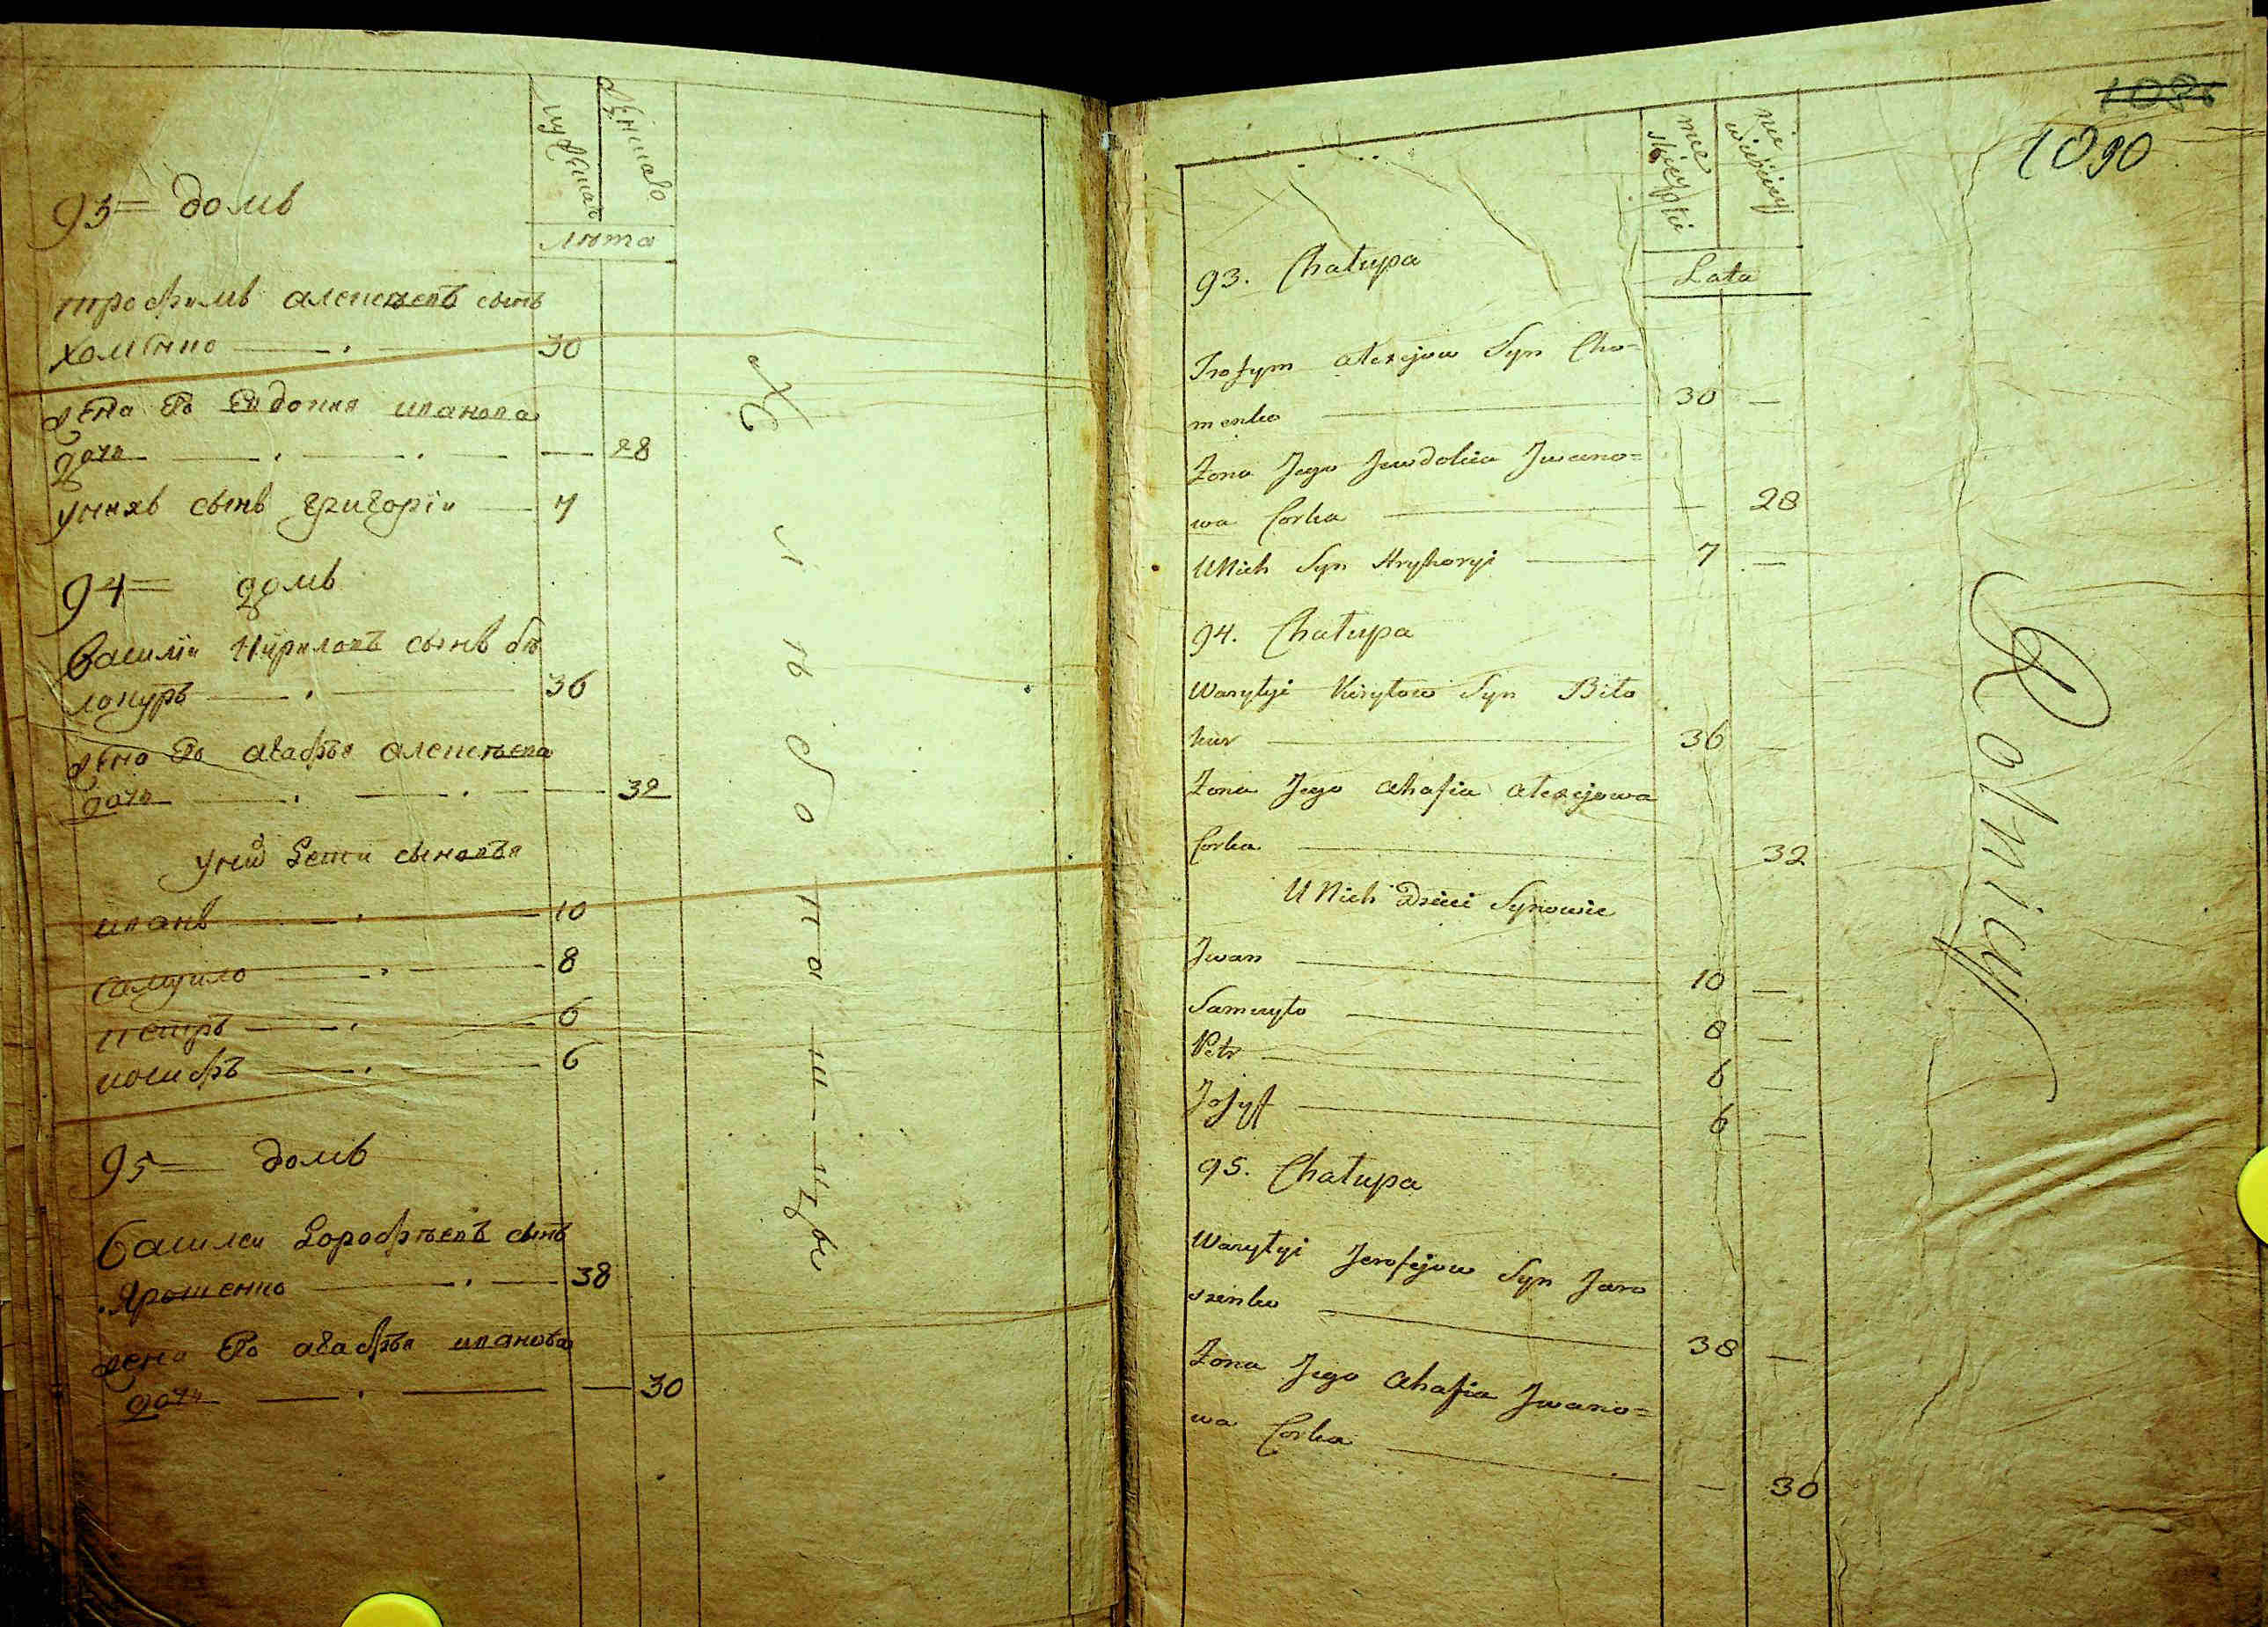 мужеска
женскаго
лѣта
93= домъ
трофимъ алексѣевъ сынъ
хоменко 30
жена Его Евдокия иванова
дочь 28
унихъ сынъ григорiи 7
94= домъ
василiи кириловъ сынъ бѣ
локуръ 36
жена Его агафья алексѣева
дочь 32
уних дети сыновья
иванъ 10
самуило 8
петръ 6
иосифъ 6
95= домъ
василеи дорофѣевъ сынъ
Ярошенко 38
жена Его агафья иванова
дочь 30
Хлѣбопашцы
1090
mee
skiey płci
nie
wieściey
Lata
93. Chałupa
Trofym Alexiejow Syn Cho=
menko 30 —
Żona Jego Jewdokia Jwano=
wa Corka — 28
U Nich Syn Hryhoryi 7 —
94. Chałupa
Wasylyi Kiryłow Syn Biło
kur 36 —
Żona Jego Ahafia Alexiejowa
Corka — 32
U Nich Dzieci Synowie
Jwan 10 —
Samuyło 8 —
Petr 6 —
Josyff 6 —
95. Chałupa
Wasylyi Jerofiejow Syn Jaro
szenko 38 —
Żona Jego Ahafia Jwano=
wa Corka — 30
Rolnicy